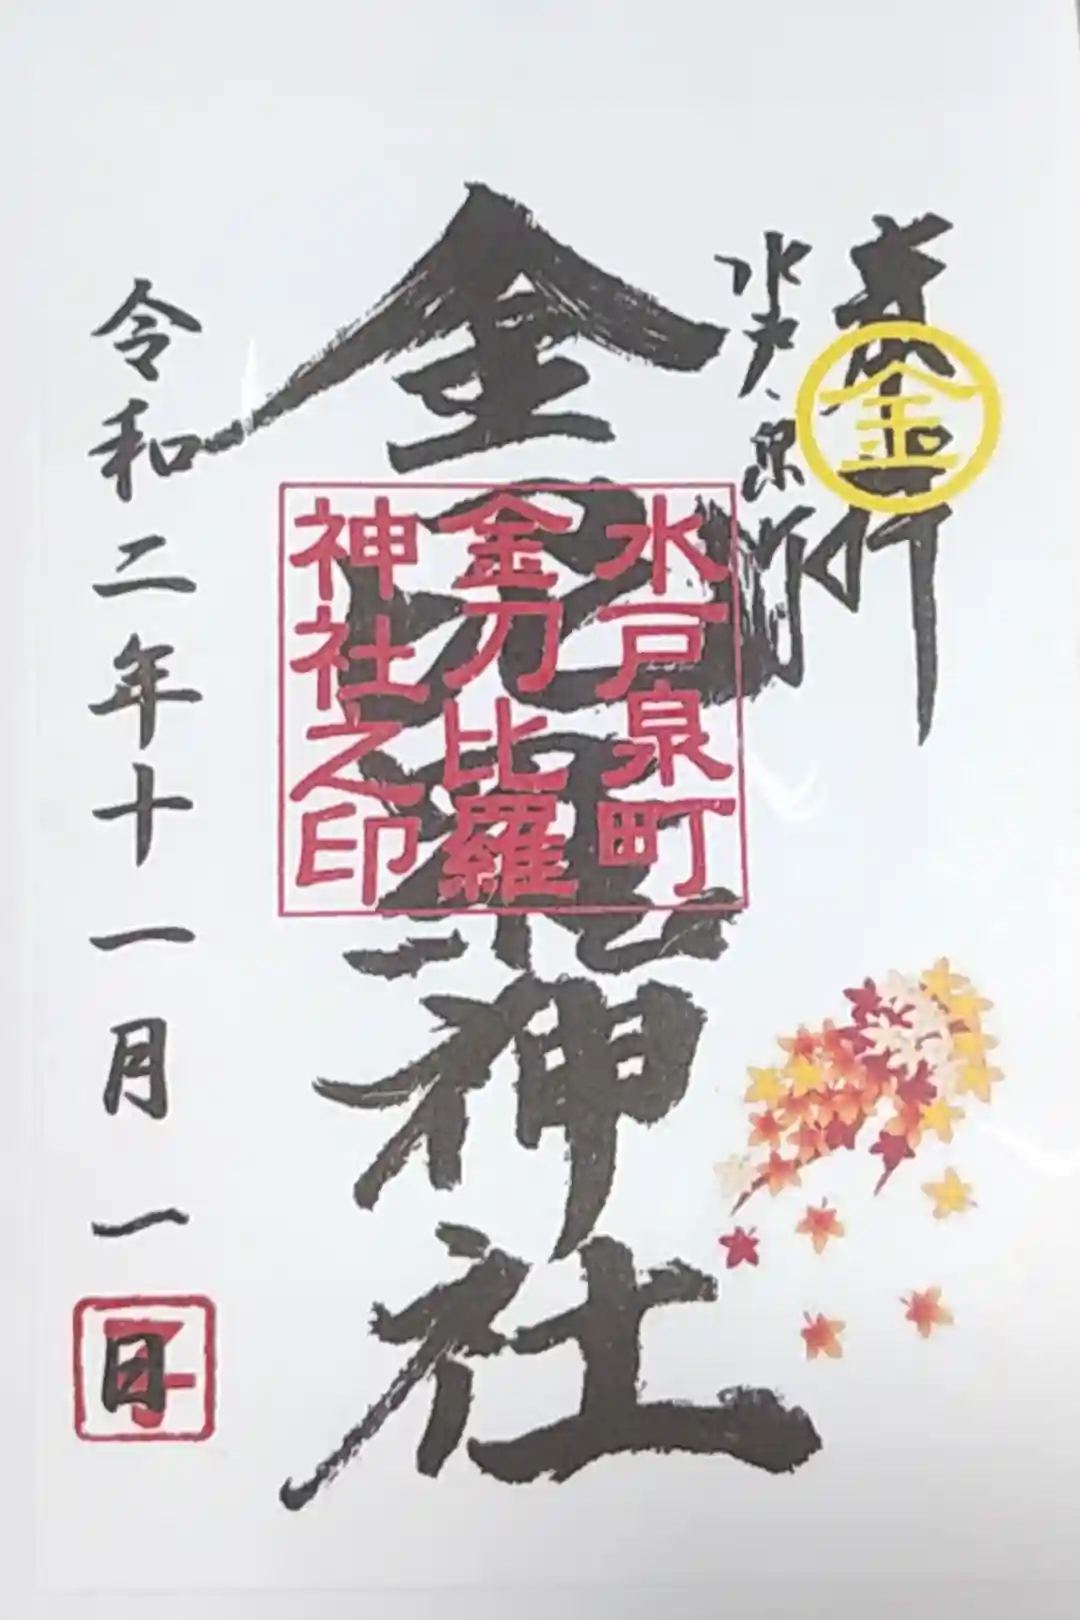 奉拝
金
水戸泉町
金刀比羅神社
水戸泉町
金刀比羅
神社之印
令和二年十一月一日
子